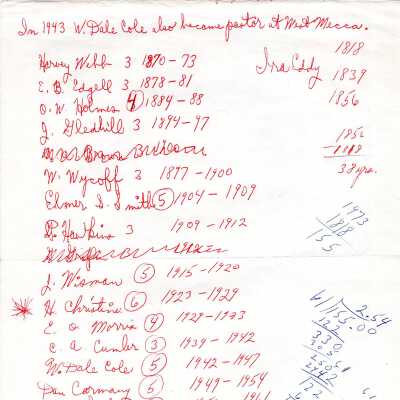 In 1943 W. Dale Cole also became pastor at West Mecca.
1818
Ira Eddy 1839
1856
Harvey Webb 3 1870-73
E. B. Edgell 3 1878-81
O. W. Holmes 4 1884-88
J. Gledhill 3 1894-97
1856
1818
38 yrs.
W. Wycoff 3 1897-1900
Elmer S. Smith 5 1904-1909
Hawkins 3 1909-1912
1973
1818
155
J. Wisman 5 1915-1920
H. Christine 6 1923-1929
E. O. Morris 4 1929-1933
C. A. Cumler 3 1939-1942
W. Dale Cole 5 1942-1947
Dan Cormany 5 1949-1954
2.54
61 155.00
122
330
305